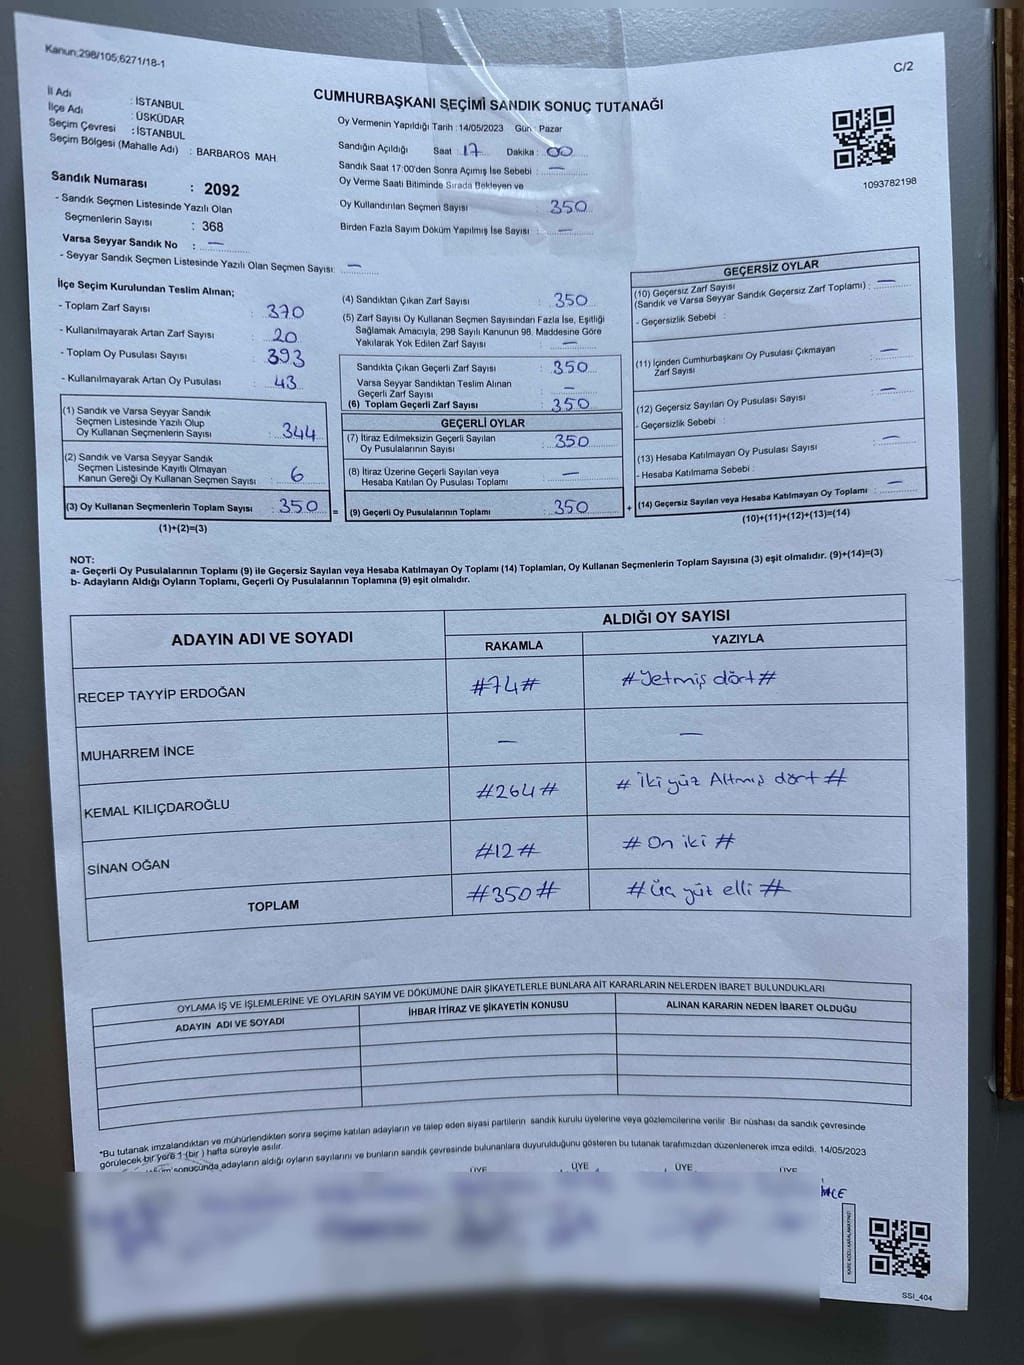 Kanun:298/105,6271/18-1
C/2
CUMHURBAŞKANI SEÇİMİ SANDIK SONUÇ TUTANAĞI
İl Adı : İSTANBUL
İlçe Adı : ÜSKÜDAR
Seçim Çevresi : İSTANBUL
Seçim Bölgesi (Mahalle Adı) : BARBAROS MAH.
Sandık Numarası : 2092
- Sandık Seçmen Listesinde Yazılı Olan
Seçmenlerin Sayısı : 368
Varsa Seyyar Sandık No : —
- Seyyar Sandık Seçmen Listesinde Yazılı Olan Seçmen Sayısı: —
Oy Vermenin Yapıldığı Tarih : 14/05/2023 Gün : Pazar
Sandığın Açıldığı Saat : 17 Dakika : 00
Sandık Saat 17:00'den Sonra Açımış İse Sebebi : —
Oy Verme Saati Bitiminde Sırada Bekleyen ve
Oy Kullandırılan Seçmen Sayısı : 350
Birden Fazla Sayım Döküm Yapılmış İse Sayısı : —
1093782198
İlçe Seçim Kurulundan Teslim Alınan;
- Toplam Zarf Sayısı : 370
- Kullanılmayarak Artan Zarf Sayısı : 20
- Toplam Oy Pusulası Sayısı : 393
- Kullanılmayarak Artan Oy Pusulası : 43
(1) Sandık ve Varsa Seyyar Sandık
Seçmen Listesinde Yazılı Olup
Oy Kullanan Seçmenlerin Sayısı : 344
(2) Sandık ve Varsa Seyyar Sandık
Seçmen Listesinde Kayıtlı Olmayan
Kanun Gereği Oy Kullanan Seçmen Sayısı : 6
(3) Oy Kullanan Seçmenlerin Toplam Sayısı : 350 =
(1)+(2)=(3)
(4) Sandıktan Çıkan Zarf Sayısı : 350
(5) Zarf Sayısı Oy Kullanan Seçmen Sayısından Fazla İse, Eşitliği
Sağlamak Amacıyla, 298 Sayılı Kanunun 98. Maddesine Göre
Yakılarak Yok Edilen Zarf Sayısı : —
Sandıkta Çıkan Geçerli Zarf Sayısı : 350
Varsa Seyyar Sandıktan Teslim Alınan
Geçerli Zarf Sayısı : —
(6) Toplam Geçerli Zarf Sayısı : 350
GEÇERLİ OYLAR
(7) İtiraz Edilmeksizin Geçerli Sayılan
Oy Pusulalarının Sayısı : 350
(8) İtiraz Üzerine Geçerli Sayılan veya
Hesaba Katılan Oy Pusulası Toplamı : —
(9) Geçerli Oy Pusulalarının Toplamı : 350 +
GEÇERSİZ OYLAR
(10) Geçersiz Zarf Sayısı
(Sandık ve Varsa Seyyar Sandık Geçersiz Zarf Toplamı) : —
- Geçersizlik Sebebi :
(11) İçinden Cumhurbaşkanı Oy Pusulası Çıkmayan
Zarf Sayısı : —
(12) Geçersiz Sayılan Oy Pusulası Sayısı : —
- Geçersizlik Sebebi :
(13) Hesaba Katılmayan Oy Pusulası Sayısı : —
- Hesaba Katılmama Sebebi :
(14) Geçersiz Sayılan veya Hesaba Katılmayan Oy Toplamı : —
(10)+(11)+(12)+(13)=(14)
NOT:
a- Geçerli Oy Pusulalarının Toplamı (9) ile Geçersiz Sayılan veya Hesaba Katılmayan Oy Toplamı (14) Toplamları, Oy Kullanan Seçmenlerin Toplam Sayısına (3) eşit olmalıdır. (9)+(14)=(3)
b- Adayların Aldığı Oyların Toplamı, Geçerli Oy Pusulalarının Toplamına (9) eşit olmalıdır.
ADAYIN ADI VE SOYADI ALDIĞI OY SAYISI
RAKAMLA YAZIYLA
RECEP TAYYİP ERDOĞAN #74# #Yetmiş dört#
MUHARREM İNCE — —
KEMAL KILIÇDAROĞLU #264# # İki yüz Altmış dört #
SİNAN OĞAN #12# # On iki #
TOPLAM #350# # Üç yüz elli #
OYLAMA İŞ VE İŞLEMLERİNE VE OYLARIN SAYIM VE DÖKÜMÜNE DAİR ŞİKAYETLERLE BUNLARA AİT KARARLARIN NELERDEN İBARET BULUNDUKLARI
ADAYIN ADI VE SOYADI İHBAR İTİRAZ VE ŞİKAYETİN KONUSU ALINAN KARARIN NEDEN İBARET OLDUĞU
*Bu tutanak imzalandıktan ve mühürlendikten sonra seçime katılan adayların ve talep eden siyasi partilerin sandık kurulu üyelerine veya gözlemcilerine verilir Bir nüshası da sandık çevresinde
görülecek bir yere 1 (bir ) hafta süreyle asılır.
sonucunda adayların aldığı oyların sayılarını ve bunların sandık çevresinde bulunanlara duyurulduğunu gösteren bu tutanak tarafımızdan düzenlenerek imza edildi. 14/05/2023
ÜYE ÜYE ÜYE ÜYE
İNCE
SSI_404